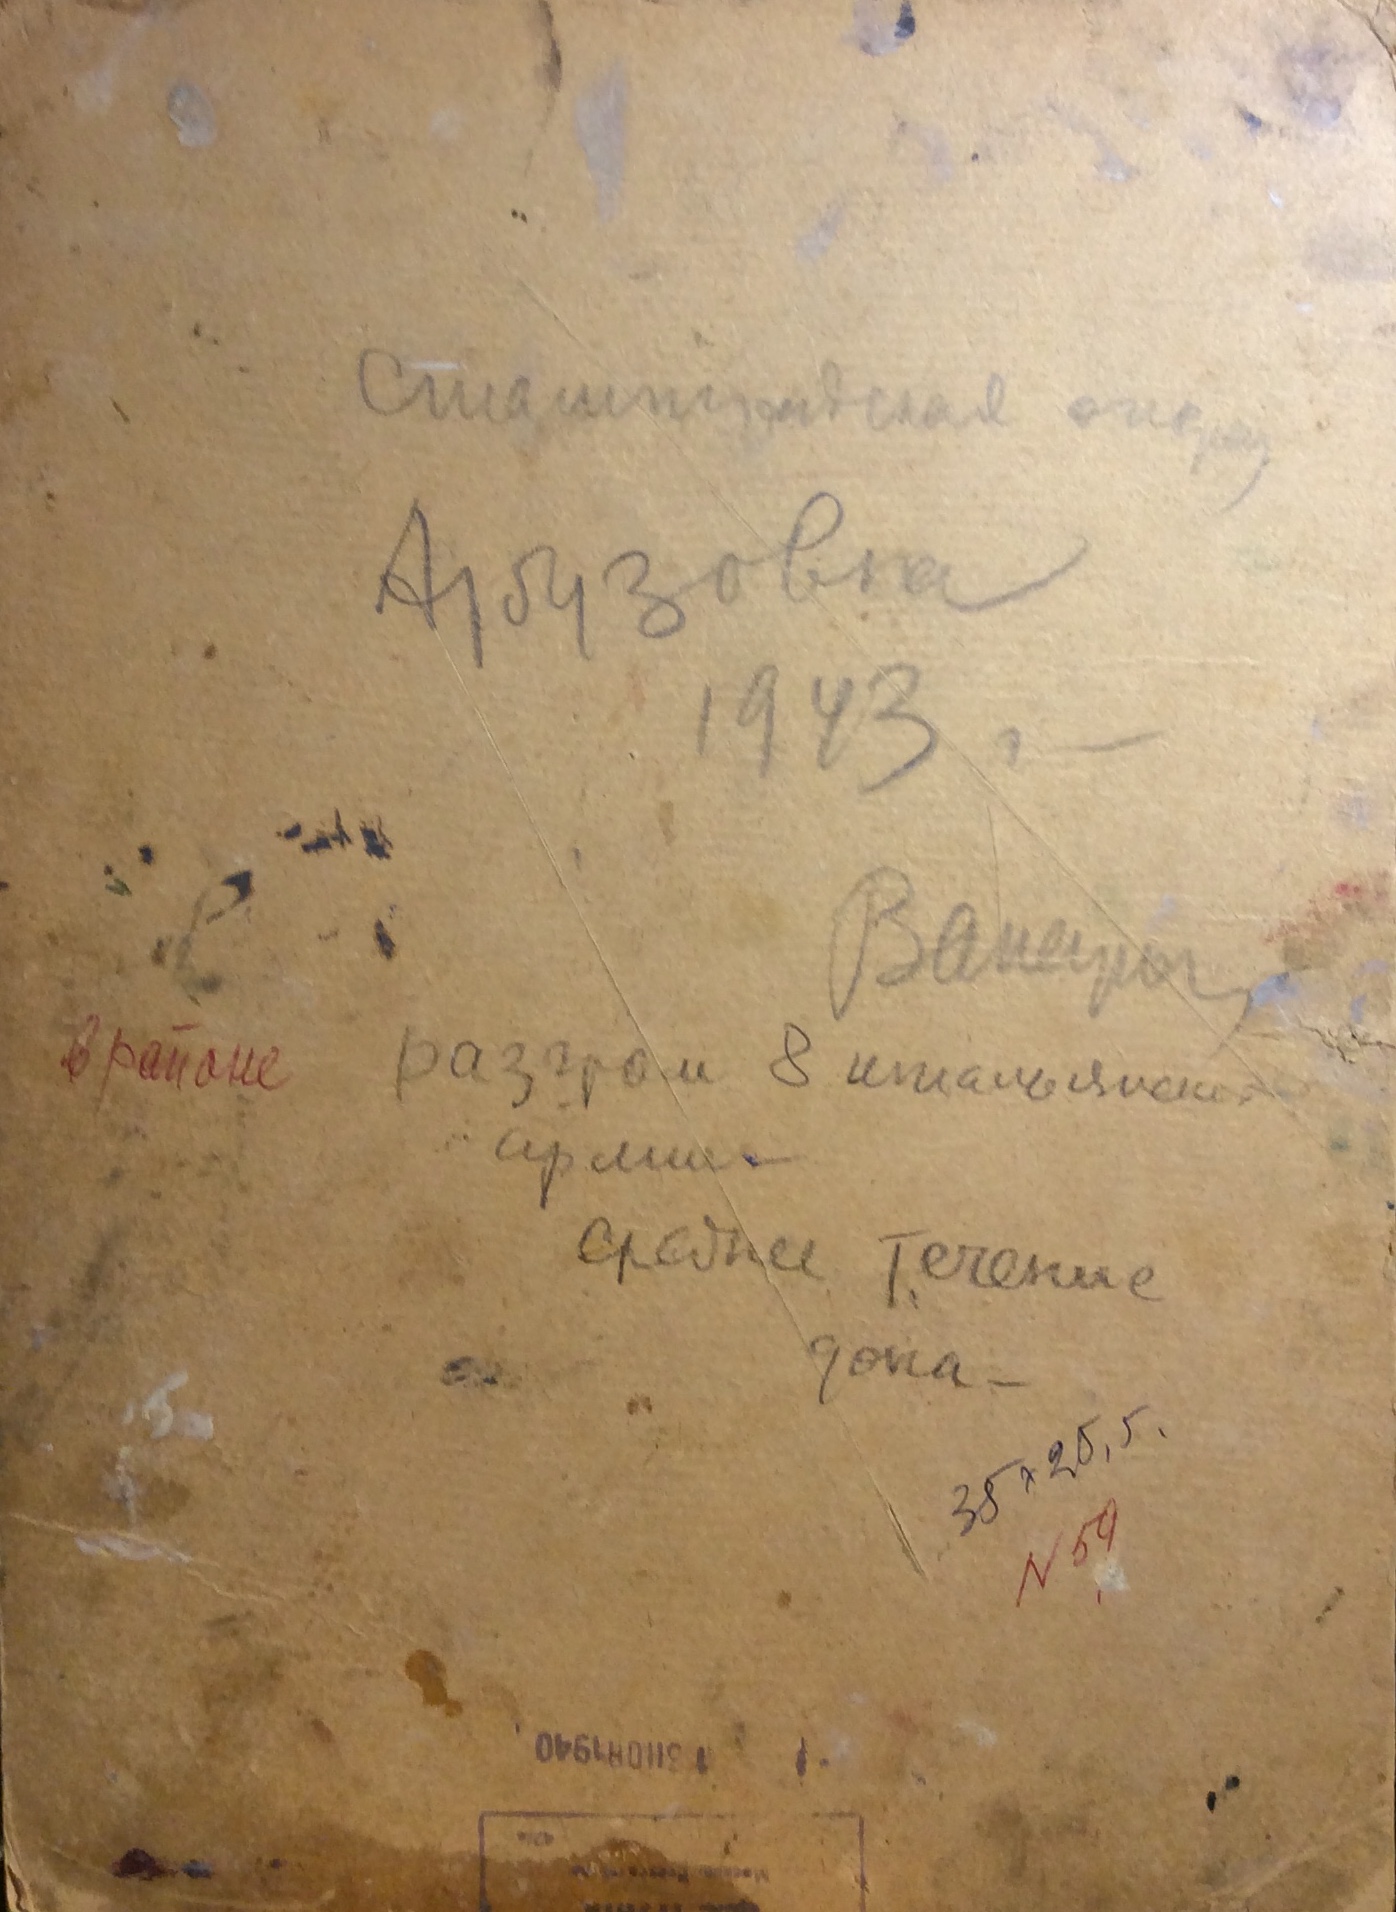 Сталинградская операц
Арбузовка
1943 г.—
в районе разгром 8 итальянской
армии—
среднее Течение
дона—
35×25,5.
N 59
13 НОЯ 1940